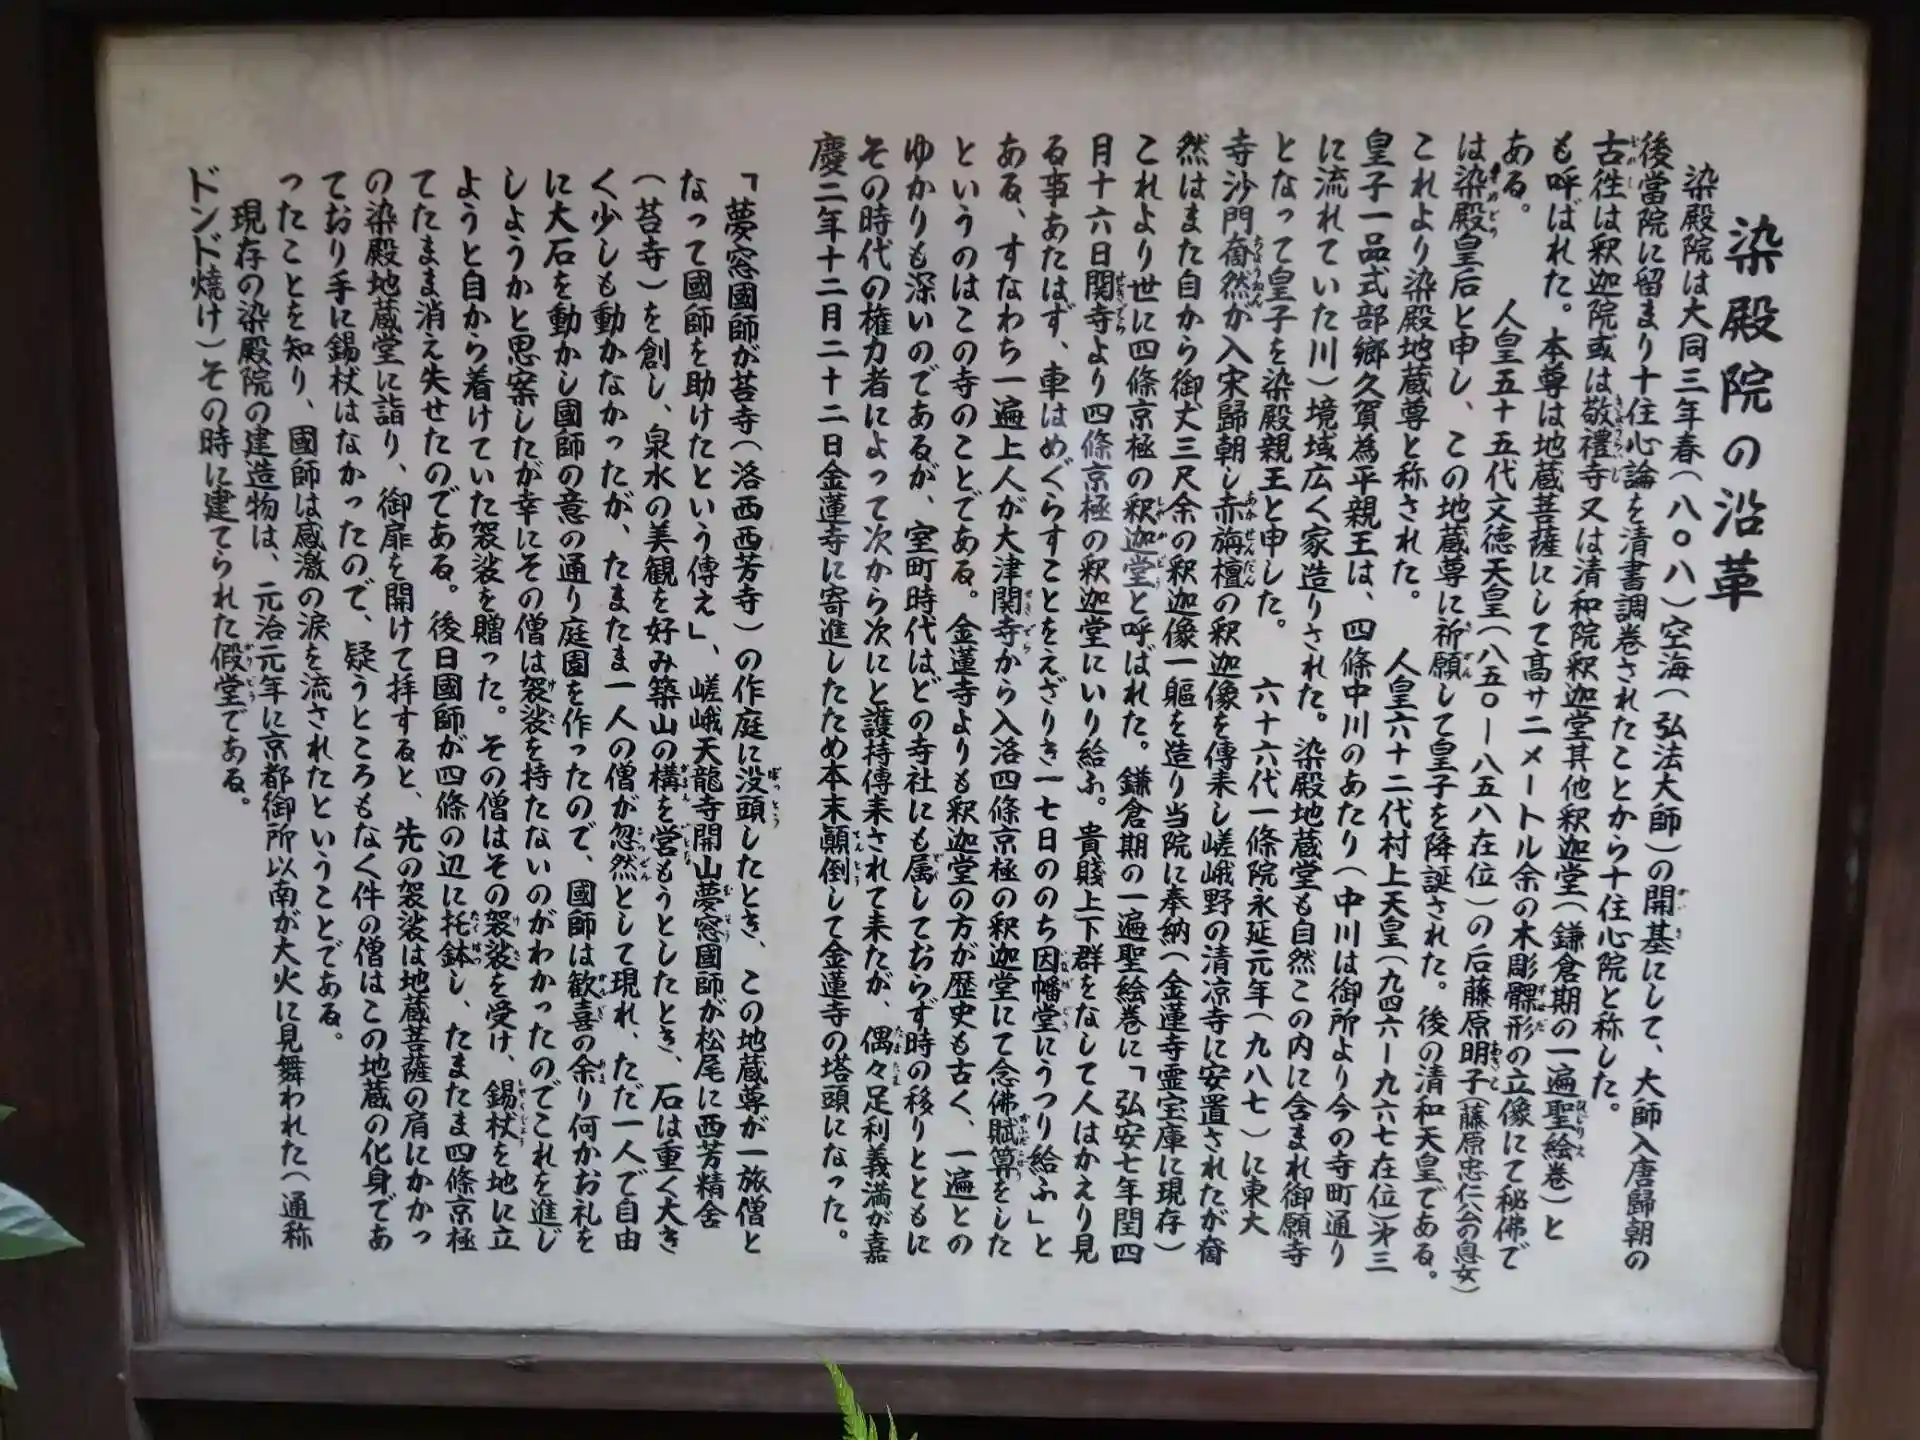 染殿院の沿革
染殿院は大同三年春(八〇八)空海(弘法大師)の開基にして、大師入唐歸朝の
後當院に留まり十住心論を清書調巻されたことから十住心院と称した。
古徃は釈迦院或は敬禮寺又は清和院釈迦堂其他釈迦堂(鎌倉期の一遍聖絵巻)と
も呼ばれた。本尊は地蔵菩薩にして髙サ二メートル余の木彫髁形の立像にて秘佛で
ある。 人皇五十五代文徳天皇(八五〇ー八五八在位)の后藤原明子(藤原忠仁公の息女)
は染殿皇后と申し、この地蔵尊に祈願して皇子を降誕された。後の清和天皇である。
これより染殿地蔵尊と称された。 人皇六十二代村上天皇(九四六ー九六七在位)㐧三
皇子一品式部郷久賀為平親王は、四條中川のあたり(中川は御所より今の寺町通り
に流れていた川)境域広く家造りされた。染殿地蔵堂も自然この内に含まれ御願寺
となって皇子を染殿親王と申した。 六十六代一條院永延元年(九八七)に東大
寺沙門奝然が入宋歸朝し赤旃檀の釈迦像を傳来し嵯峨野の清凉寺に安置されたが奝
然はまた自から御丈三尺余の釈迦像一軀を造り当院に奉納(金蓮寺霊宝庫に現存)
これより世に四條京極の釈迦堂と呼ばれた。鎌倉期の一遍聖絵巻に「弘安七年閏四
月十六日関寺より四條京極の釈迦堂にいり給ふ。貴賤上下群をなして人はかえり見
る事あたはず、車はめぐらすことをえざりき一七日ののち因幡堂にうつり給ふ」と
ある、すなわち一遍上人が大津関寺から入洛四條京極の釈迦堂にて念佛賦算をした
というのはこの寺のことである。金蓮寺よりも釈迦堂の方が歴史も古く、一遍との
ゆかりも深いのであるが、室町時代はどの寺社にも属しておらず時の移りとともに
その時代の権力者によって次から次にと護持傳来されて来たが、偶々足利義満が嘉
慶二年十二月二十二日金蓮寺に寄進したため本末顚倒して金蓮寺の塔頭になった。
「夢窓國師が苔寺(洛西西芳寺)の作庭に没頭したとき、この地蔵尊が一旅僧と
なって國師を助けたという傳え」、嵯峨天龍寺開山夢窓國師が松尾に西芳精舎
(苔寺)を創し、泉水の美観を好み築山の構を営もうとしたとき、石は重く大き
く少しも動かなかったが、たまたま一人の僧が忽然として現れ、ただ一人で自由
に大石を動かし國師の意の通り庭園を作ったので、國師は歓喜の余り何かお礼を
しようかと思案したが幸にその僧は袈裟を持たないのがわかったのでこれを進じ
ようと自から着けていた袈裟を贈った。その僧はその袈裟を受け、錫杖を地に立
てたまま消え失せたのである。後日國師が四條の辺に托鉢し、たまたま四條京極
の染殿地蔵堂に詣り、御扉を開けて拝すると、先の袈裟は地蔵菩薩の肩にかかっ
ており手に錫杖はなかったので、疑うところもなく件の僧はこの地蔵の化身であ
ったことを知り、國師は感激の涙を流されたということである。
現存の染殿院の建造物は、元治元年に京都御所以南が大火に見舞われた(通称
ドンド焼け)その時に建てられた假堂である。